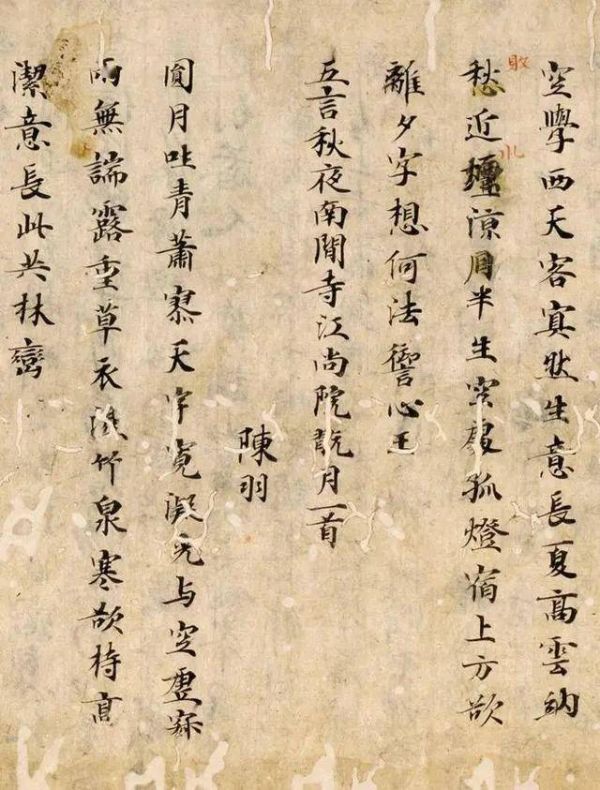 空學西天客然生意長夏高雲納
愁近壇涼月半生空孤燈宿上方欲
離夕字想何法讐心王
五言秋夜南閒寺江尚院翫月一首
陳羽
圓月吐青蕭寥天宇寛凝光与空虛
無端露重草衣湿竹泉寒欲持高
潔意長此共林巒